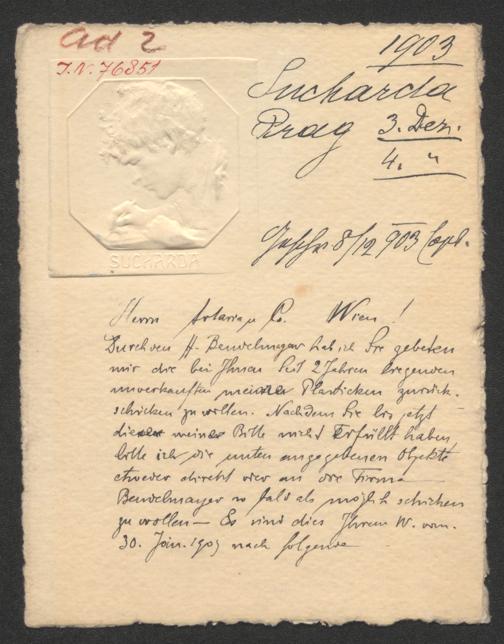 ad 2
I.N. 76851
1903
Sucharda
Prag 3. Dez.
4. "
8/12 903 Copt.
SUCHARDA
Herrn Artaria u Co. Wien!
Durch den H. Bendelmayer hab ich Sie gebeten
mir die bei Ihnen seit 2 Jahren liegenden
unverkauften meiner Plastiken zurück-
schicken zu wollen. Nachdem Sie bis jetzt
meiner Bitte nicht Erfüllt haben,
bitte ich die unten angegebenen Objekte
etweder direkt oder an die Firma
Bendelmayer so bald als möglich schicken
zu wollen — Es sind dies Ihrem W. vom.
30. Jän. 1903 nach folgende